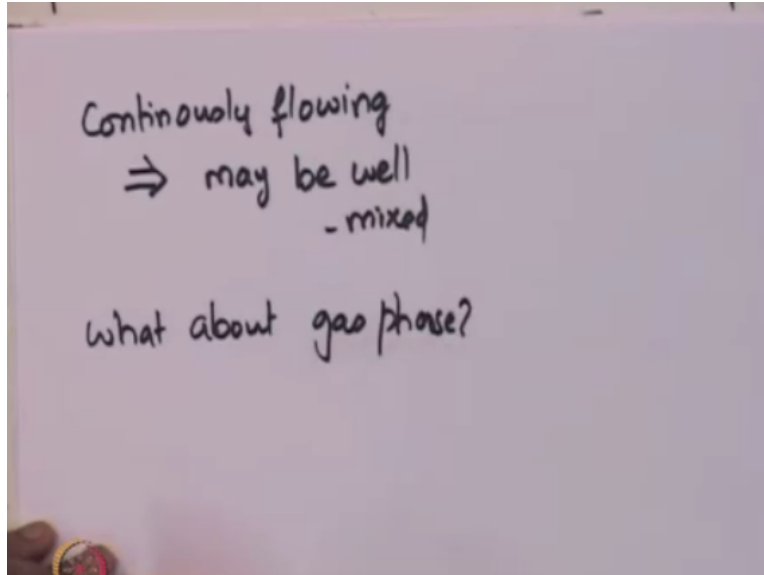 Continously flowing
⇒ may be well
-mixed
what about gas phase?